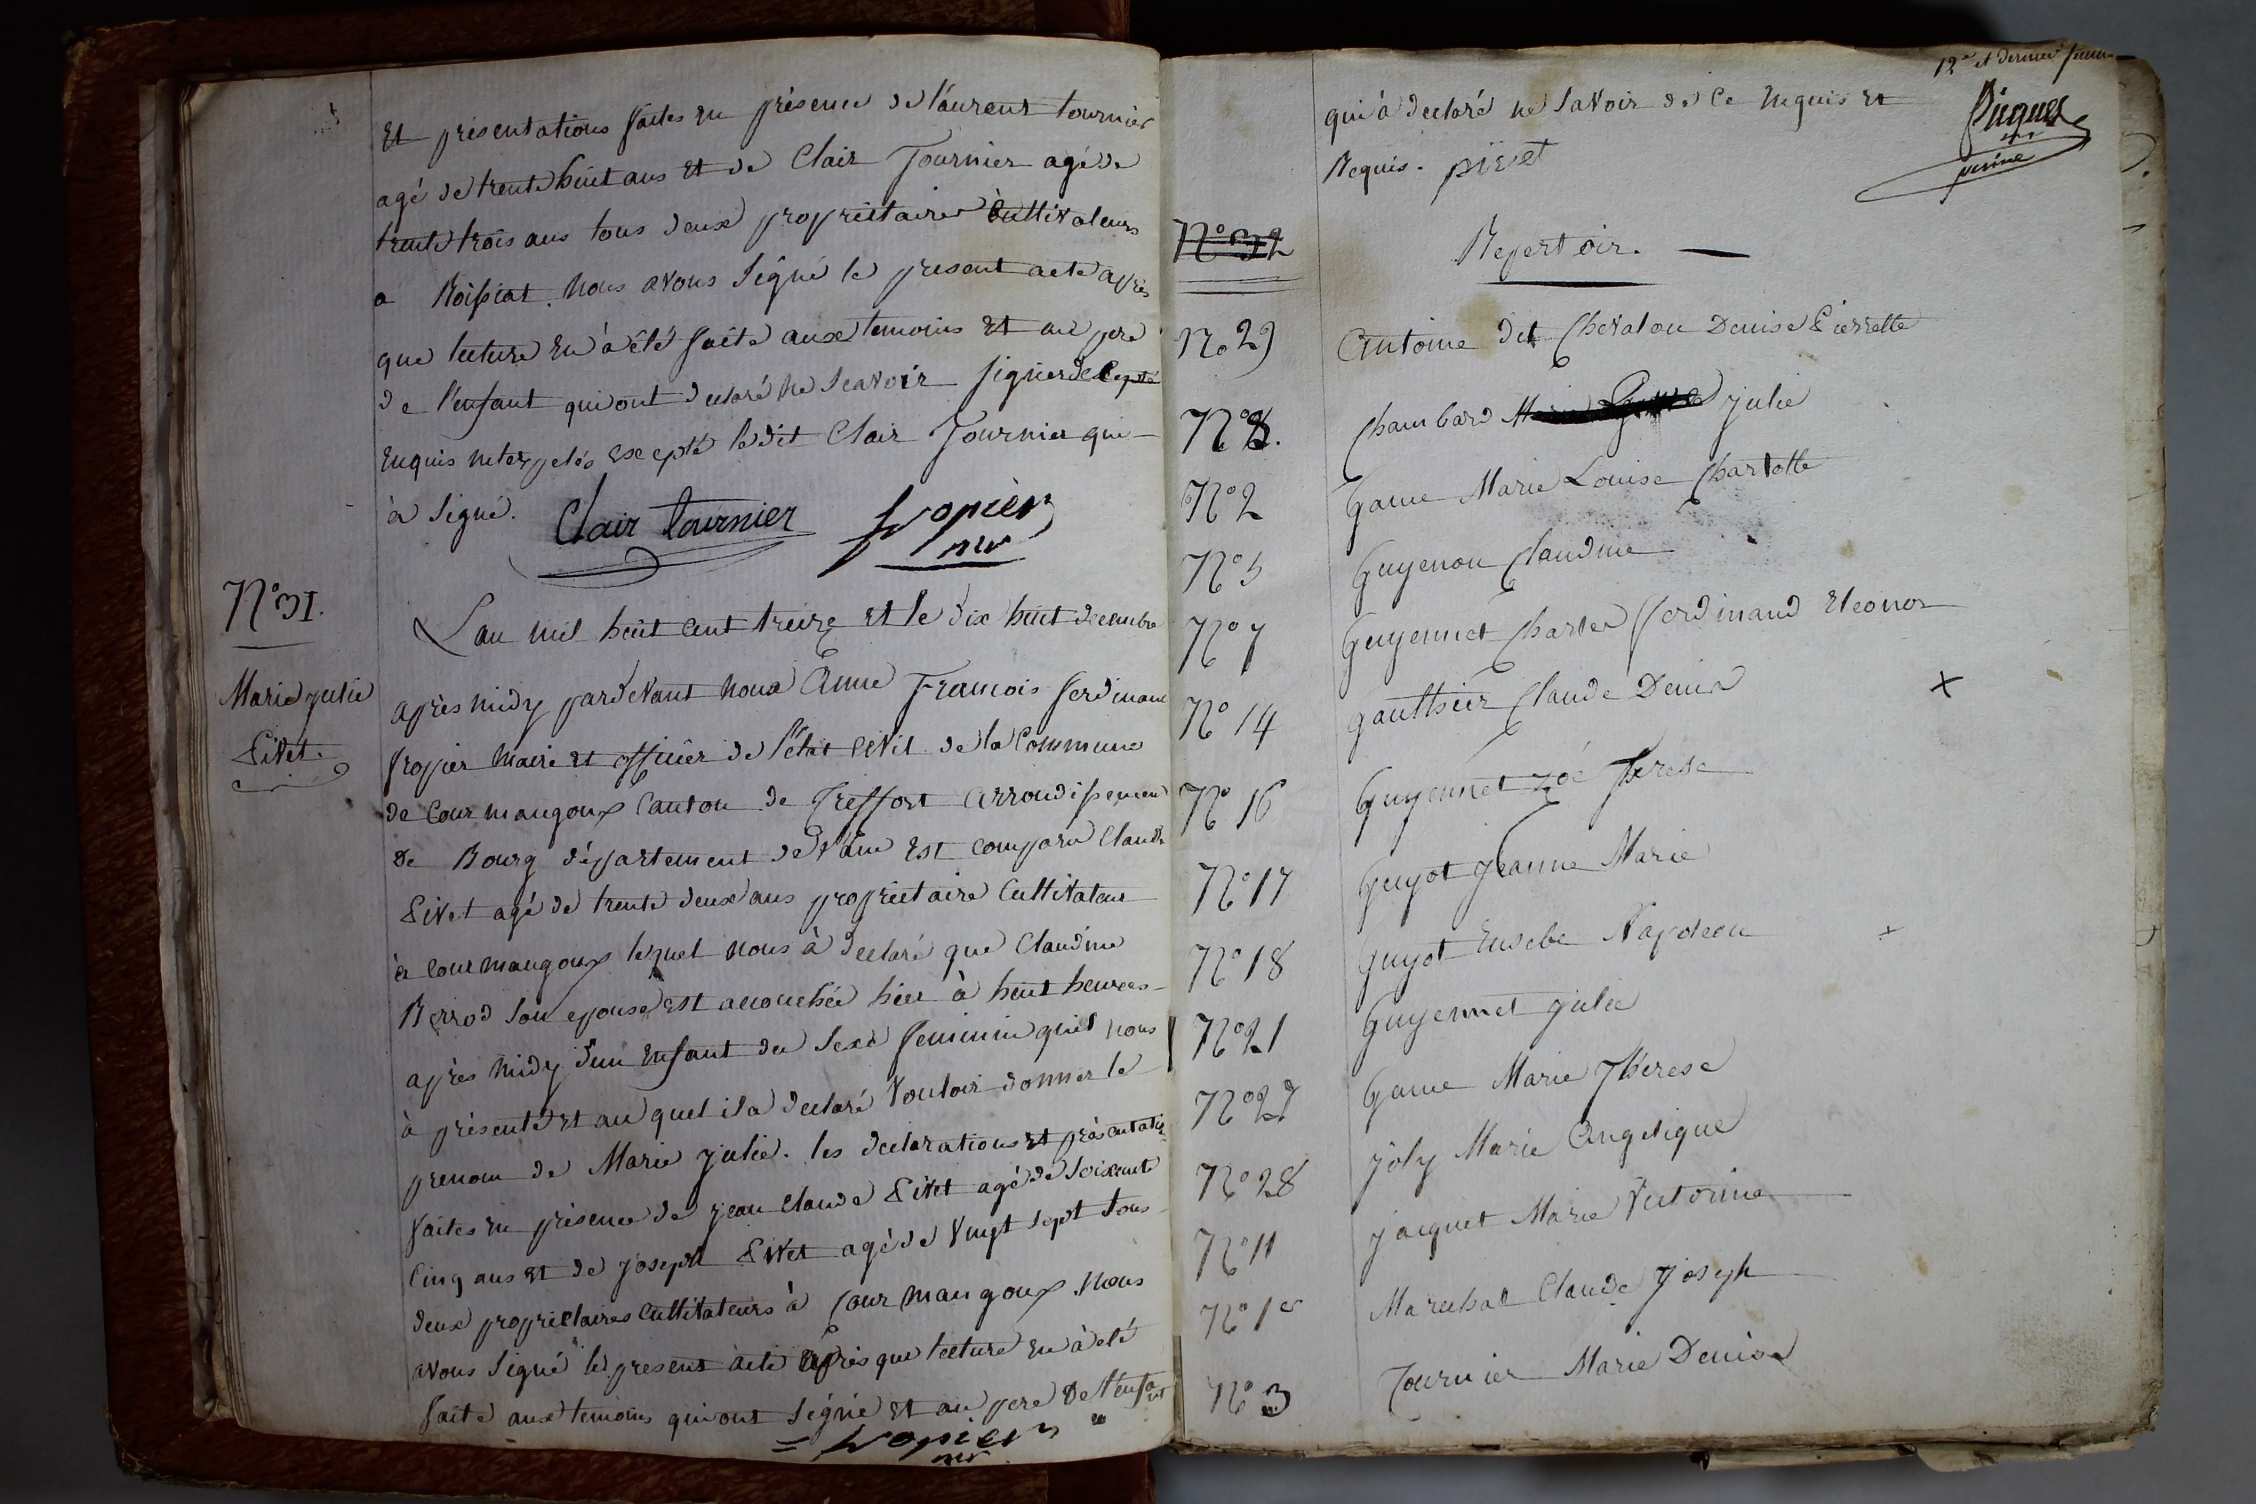 et présentations faites en présence de laurent tournier
agé de trente huit ans et de Clair Tournier agé de
trente trois ans tous deux propriétaires Cultivateurs
a Roissiat. Nous avons signé le present acte après
que lecture en à été faite aux temoins et au pere
de l'enfant qui ont declaré ne scavoir signer de
enquis excepté le dit Clair Tournier qui
à signé. Clair tournier fropier
mr
N° 31.
Marie julie
Pivet.
L'an mil huit cent treize et le dix huit decembre
après midy pardevant nous Anne François ferdinand
fropier maire et officier de l'état civil de la Commune
de Courmangoux Canton de Treffort arrondissement
de Bourg département de l'ain est comparu Claude
Pivet agé de trente deux ans propriétaire Cultivateur
à Courmangoux lequel nous à declaré que Claudine
Berrod son epouse est accouchée hier à huit heures
après midy d'un enfant du sexe feminin qu'il nous
à présenté et au quel il a declaré vouloir donner le
prenom de Marie julie. les declarations et présentation
faites en présence de jean claude Pivet agé de soixante
cinq ans et de joseph Pivet agé de vingt sept tous
deux proprietaires cultivateurs à Courmangoux. Nous
avons signé le present acte après que lecture en à été
faite aux temoins qui ont signé et au pere de l'enfant
fropier
mr
12e et dernier feuillet
qui à declaré ne savoir de ce enquis et
Requis. pivet
N° 32
Repertoir.
N° 29 Antoine dit Chevalon Denise Pierrette
N° 8. Chambard julie
N° 2 Game Marie Louise Charlotte
N° 5 Guyenon Claudine
N° 7 Guyennet Charles ferdinand Eleonor
N° 14 gauthier Claude Denis x
N° 16 Guyennet Zoé Therese
N° 17 Guyot Jeanne Marie
N° 18 guyot Eusebe Napoleon x
N° 21 Guyennet julie
N° 27 Game Marie Therese
N° 28 joly Marie Angelique
N° 11 jacquet Marie Victorine
N° 1er Marechal Claude Joseph
N° 3 Tournier Marie Denise